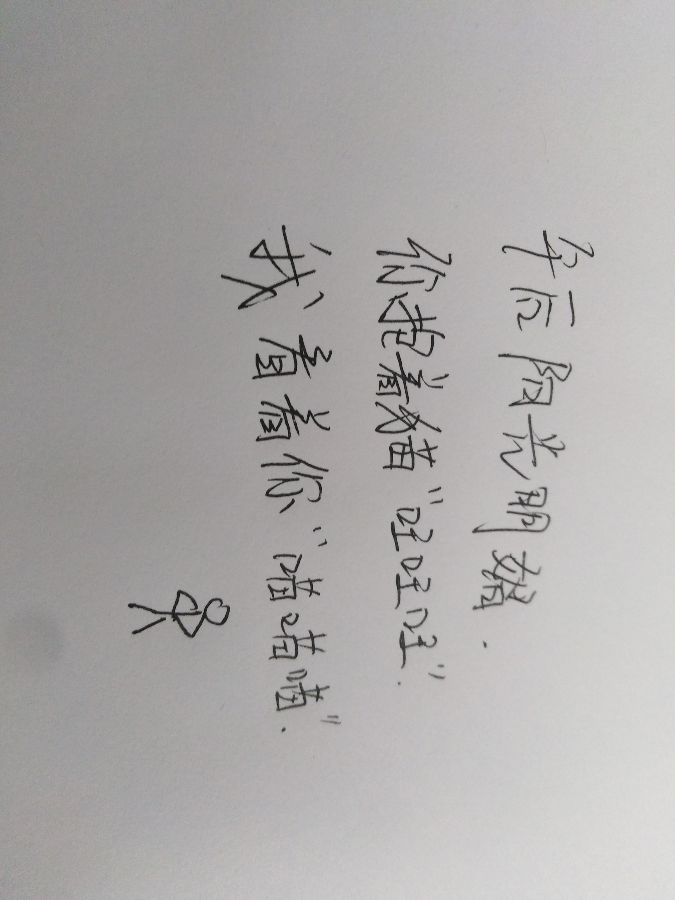 午后阳光明媚.
你抱着猫“吐吐吐”.
我看着你“喵喵喵”.